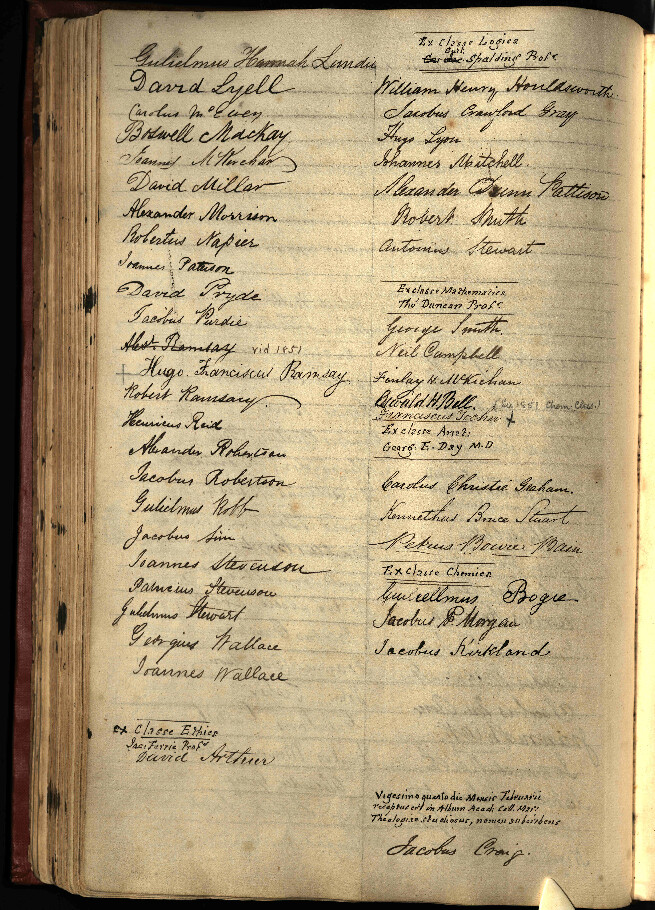 Gulielmus Hannah Lundie
David Lyell
Carolus McEwen
Boswell Mackay
Joannes McKerchar
David Millar
Alexander Morrison
Robertus Napier
Joannes Paterson
David Pryde
Jacobus Purdie
Alexr. Ramsay vid 1851
+ Hugo Franciscus Ramsay
Robert Ramsay
Henricus Reid
Alexander Robertson
Jacobus Robertson
Gulielmus Robb
Jacobus Sim
Joannes Stevenson
Patricius Stevenson
Gulielmus Stewart
Georgius Wallace
Joannes Wallace
Ex Classe Ethices
Jac: Ferrie Profr
David Arthur
Ex Classe Logica
Guil. Spalding Profr
William Henry Houldsworth
Jacobus Crawford Gray
Hugo Lyon
Johannes Mitchell
Alexander Dunn Pattison
Robert Smith
Antonius Stewart
Ex classe Mathematica
Tho Duncan Profr
George Smith
Neil Campbell
Finlay H. McKichan
Oswald H. Bell. 1851 Chem. Class.)
+
Ex Classe Anat:
Georg. E. Day M.D
Carolus Christie Graham.
Kennethus Bruce Stuart
Petrus Bowie Bain
Ex Classe Chemica
Guilellmus Bogie
Jacobus P. Morgan
Jacobus Kirkland
Vigesimo quarto die Mensis Februarii
receptus est in Album Acad: Coll. Mar:
Theologiae studiosus, nomen subscribens
Jacobus Craig.